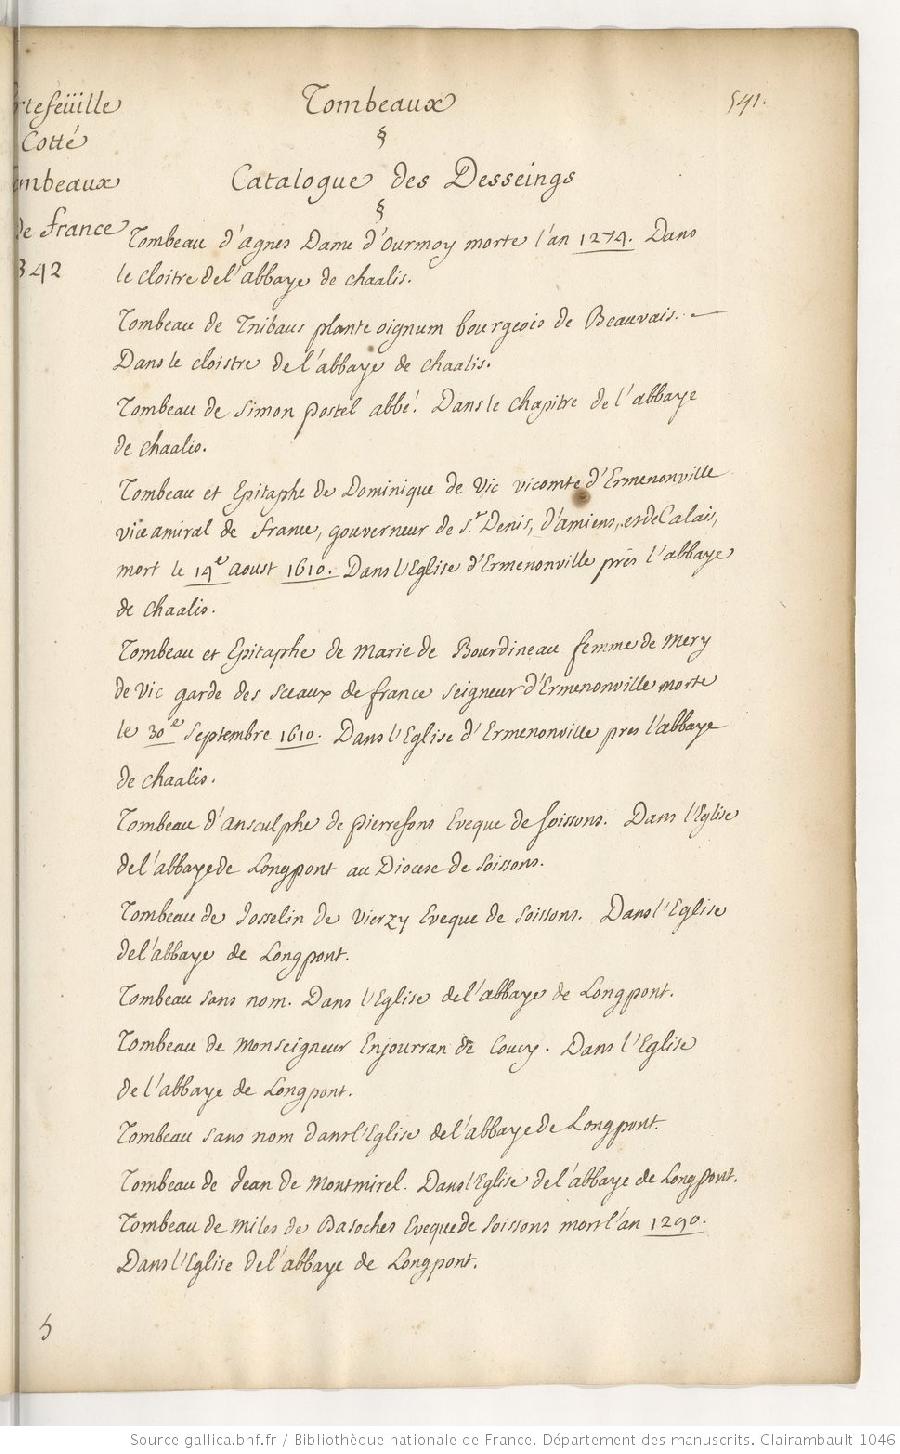 rtefeüille
Cotté
mbeaux
de france
342
Tombeaux
541.
§
Catalogue des Desseings
§
Tombeau d'agnes Dame d'ourmoy morte l'an 1274. Dans
le cloitre de l'abbaye de chaalis.
Tombeau de Tribaus plante oignum bourgeois de Beauvais.
Dans le cloistre de l'abbaye de chaalis.
Tombeau de Simon Postel abbé. Dans le chapitre de l'abbaye
de chaalis.
Tombeau et Epitaphe de Dominique de Vic vicomte d'Ermenonville
vice amiral de france, gouverneur de St Denis, d'amiens, et de Calais,
mort le 14e aoust 1610. Dans l'Eglise d'Ermenonville près l'abbaye
de chaalis.
Tombeau et Epitaphe de Marie de Bourdineau femme de Mery
de Vic garde des sceaux de france seigneur d'Ermenonville morte
le 30e Septembre 1610. Dans l'Eglise d'Ermenonville pres l'abbaye
de chaalis.
Tombeau d'ansculphe de pierrefons Eveque de soissons. Dans l'Eglise
de l'abbaye de Longpont au Diocese de soissons.
Tombeau de Josselin de Vierzy Eveque de soissons. Dans l'Eglise
de l'abbaye de Longpont.
Tombeau sans nom. Dans l'Eglise de l'abbaye de Longpont.
Tombeau de Monseigneur Enjourran de Coucy. Dans l'Eglise
de l'abbaye de Longpont.
Tombeau sans nom dans l'Eglise de l'abbaye de Longpont.
Tombeau de Jean de Montmirel. Dans l'Eglise de l'abbaye de Longpont.
Tombeau de Miles de Basoches Eveque de soissons mort l'an 1290.
Dans l'Eglise de l'abbaye de Longpont.
Source gallica.bnf.fr / Bibliothèque nationale de France. Département des manuscrits. Clairambault 1046